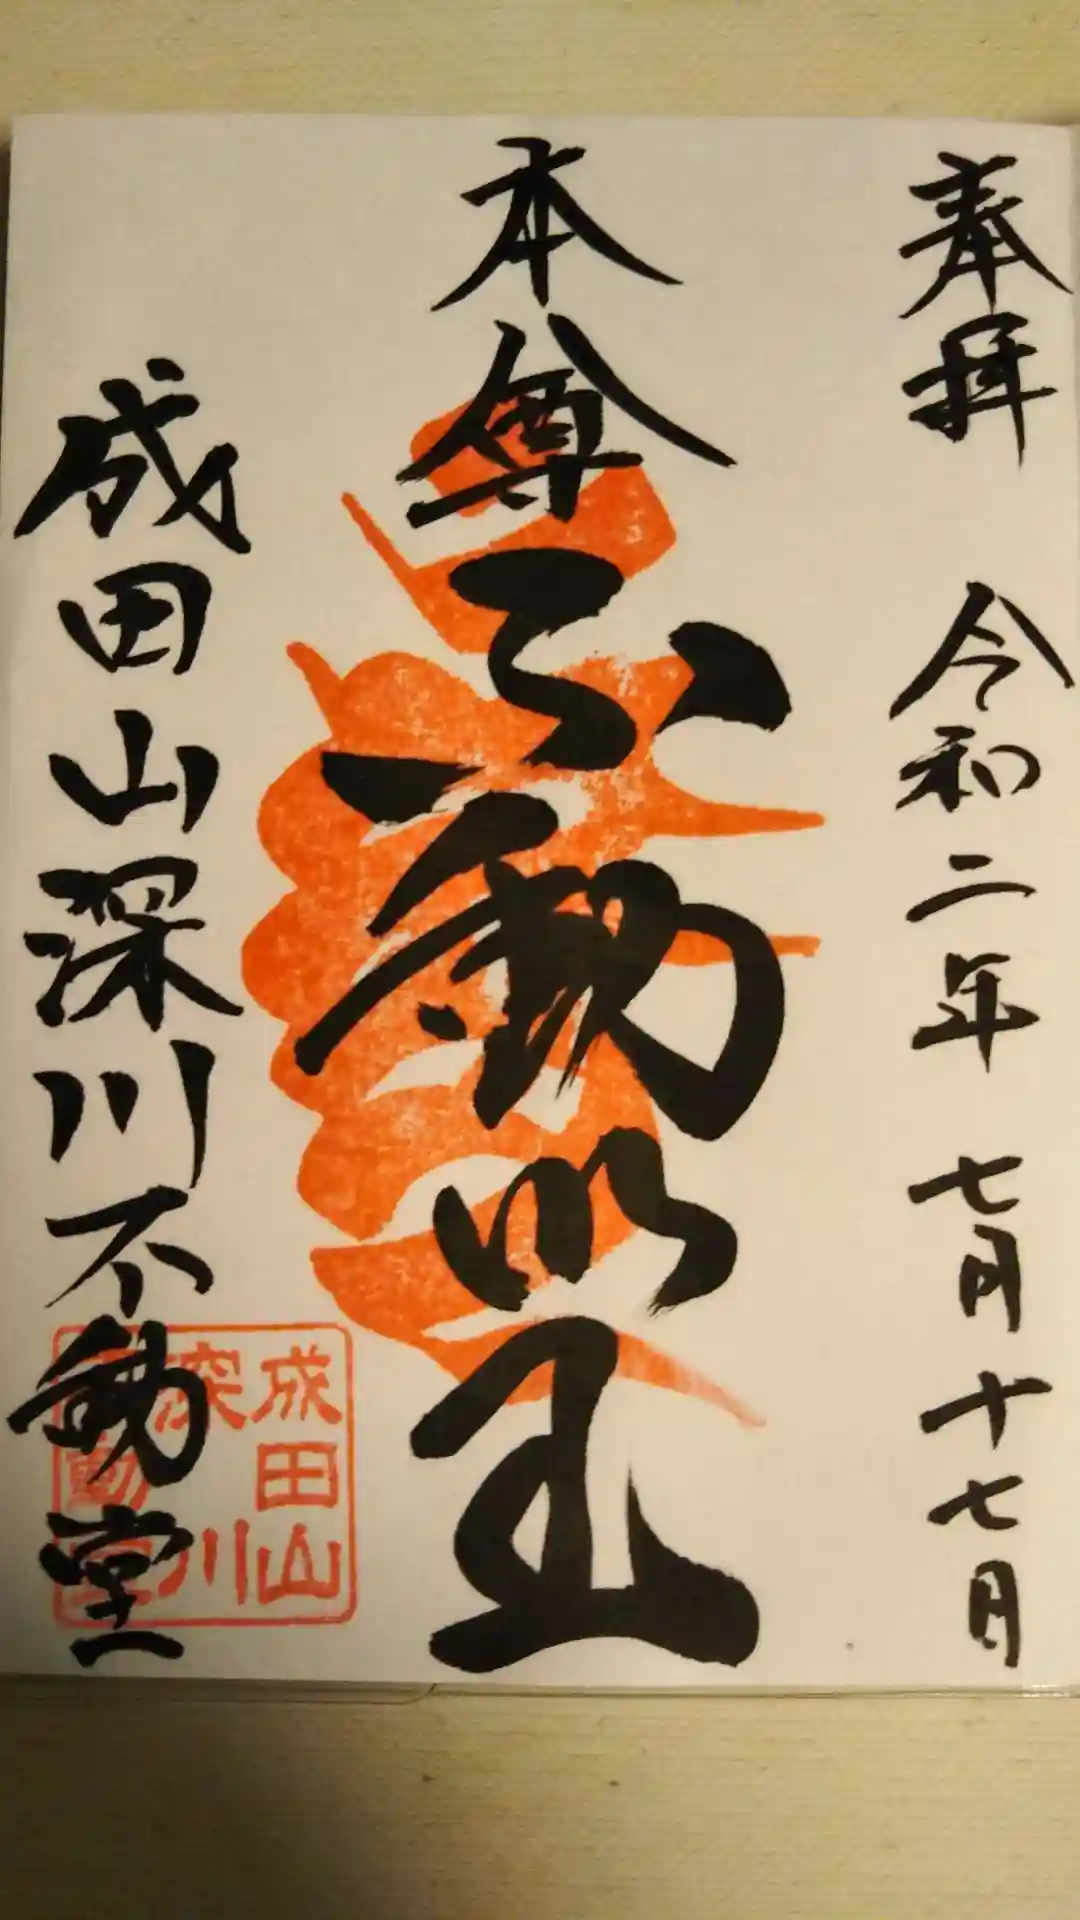 奉拝　令和二年　七月十七日
本尊不動明王
成田山深川不動堂
成田山
深川
不動堂